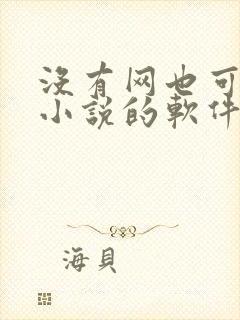 没有网也可
小说的軟件
海貝